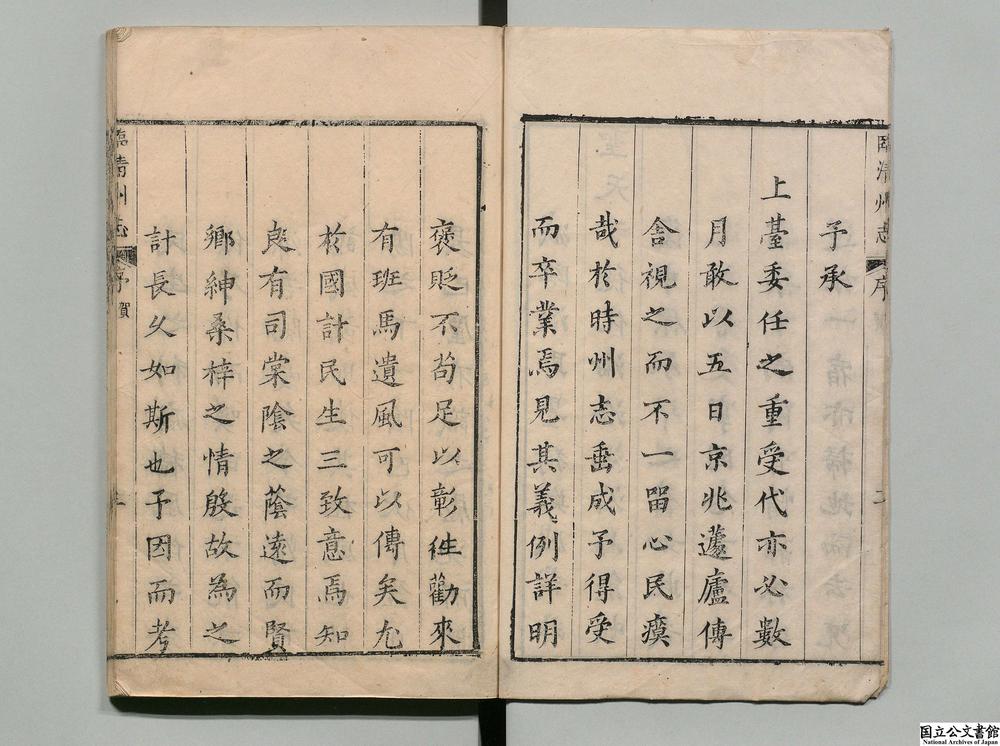 臨清州志 序
予承
上臺委任之重受代亦必數
月敢以五日京兆蘧廬傳
舍視之而不一留心民瘼
哉於時州志垂成予得受
而卒業焉見其義例詳明
褒貶不苟足以彰徃勸來
有班馬遺風可以傳矣尤
於國計民生三致意焉知
良有司棠陰之蔭遠而賢
鄉紳桑梓之情殷故為之
計長久如斯也予因而考
臨清州志 序 賀
国立公文書館
National Archives of Japan